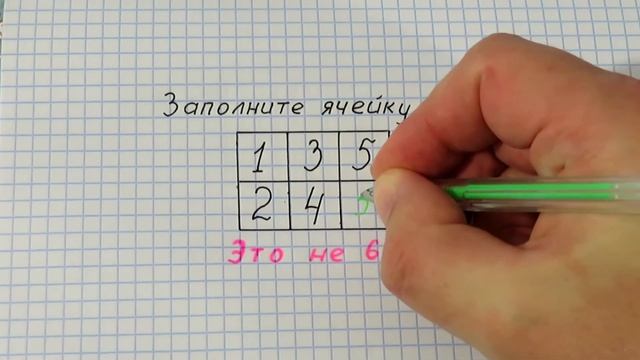 Заполните ячейку
1 3 5
2 4
Это не 6